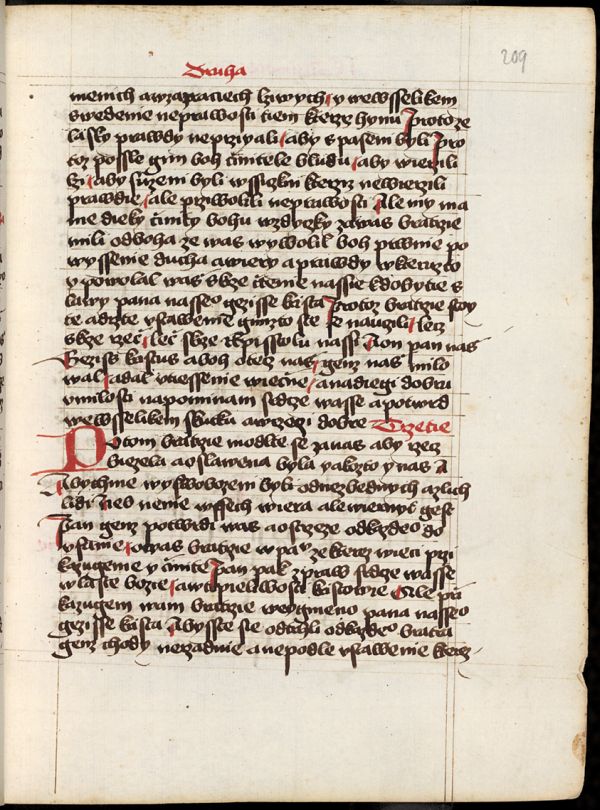 Druha
209
menich a wzazraciech lziwych y wewsselikem
swedenie neprawosti tiem kterzz hynu Protoze
lasky prawdy neprziyali aby spaseni byli Pro
toz possle gim boh czinitele bludu aby wierzili
lzi aby suzeni byli wssiczkni kterziz newierzili
prawdie ale przwolili neprawosti Ale my ma
me dieky cziniti bohu wzdyczky zawas bratrzie
mili odboha ze was wywolil boh prwnie po
wyssenie ducha awiery aprawdy wkteruzto
y powolal was skze cztenie nassie kdobytie s
lawy pana nasseo gezisse krista Protoz bratrzie stoy
te adrzte vstawenie gimzto ste se nauczili lecz
skze rzecz lecz skze episstolu nassi A on pan nas
Gezis kristus aboh otecz nas genz nas milo
wal adal vtiessenie wieczne anadiegi dobru
vmilosti napominam srdcze wasse apotwrd
wewsselikem skutku awrzeczi dobre Trzetie
Potom bratrzie modlte se zanas aby rzecz
biezela aoslawena byla yakozto ynas A
Abychme wyswobozeni byli odnezbednych azlich
lidi Neb nenie wssech wiera ale wierny gest
Pan genz potwrdi was aostrzeze odkazdeo do
vfame owas bratrzie wpanu ze kterez wieci przi
kazugeme y czinite Pan pak zpraw srdcze wasse
wlasce bozie awtrpieliwosti kristowie Ale przi
kazugem wam bratrzie weygmeno pana nasseo
gezisse krista Abysste sie odtrhli odkazdeo bratra
genz chody nerzadnie anepodle vstawenie kterez